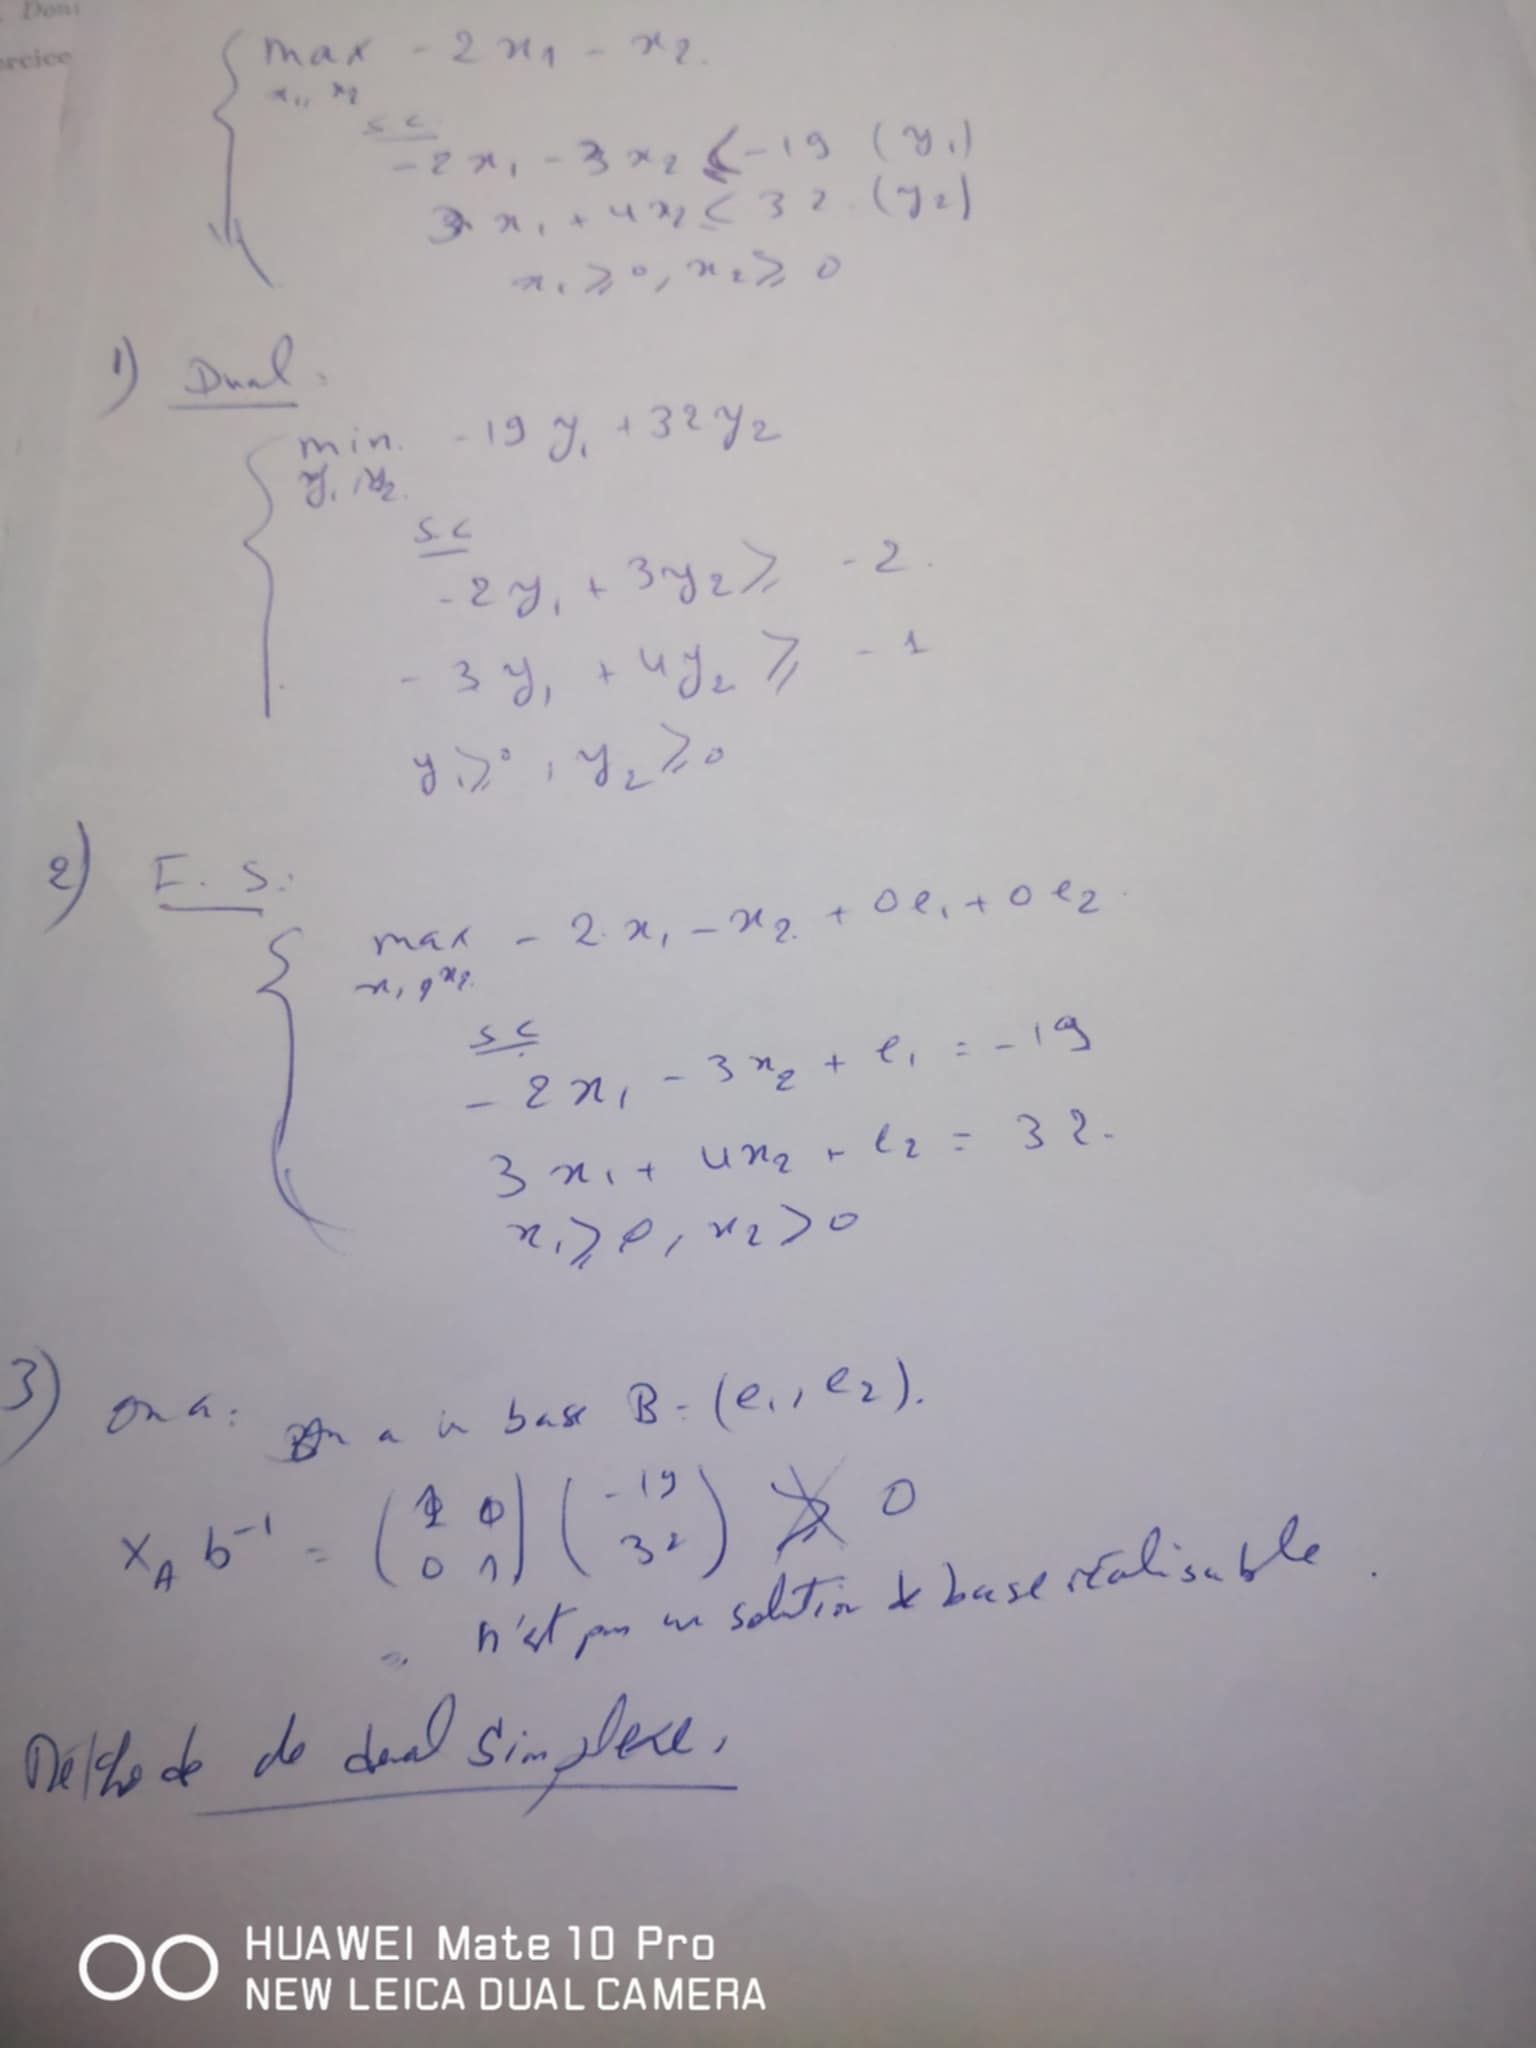 Dom
ercice
max - 2x₁ - x₂.
x₁, x₂
s c
-2x₁ - 3x₂ ≤ -19 (y₁)
3x₁ + 4x₂ ≤ 32 (y₂)
x₁ ⩾ 0, x₂ ⩾ 0
1) Dual.
min. -19y₁ + 32y₂
y₁, y₂.
s.c
-2y₁ + 3y₂ ⩾ -2.
-3y₁ + 4y₂ ⩾ -1
y₁ ⩾ 0, y₂ ⩾ 0
2) F. S.:
max - 2x₁ - x₂ + 0e₁ + 0e₂.
x₁, x₂.
s c
-2x₁ - 3x₂ + e₁ = -19
3x₁ + 4x₂ + e₂ = 32.
x₁ ⩾ 0, x₂ > 0
3) on a: a base B = (e₁, e₂).
X_A b⁻¹ = (1 0 / 0 1) (-19 / 32) ⩾̸ 0
n'est pas un solution de base réalisable.
Méthode de dual Simplexe.
HUAWEI Mate 10 Pro
NEW LEICA DUAL CAMERA